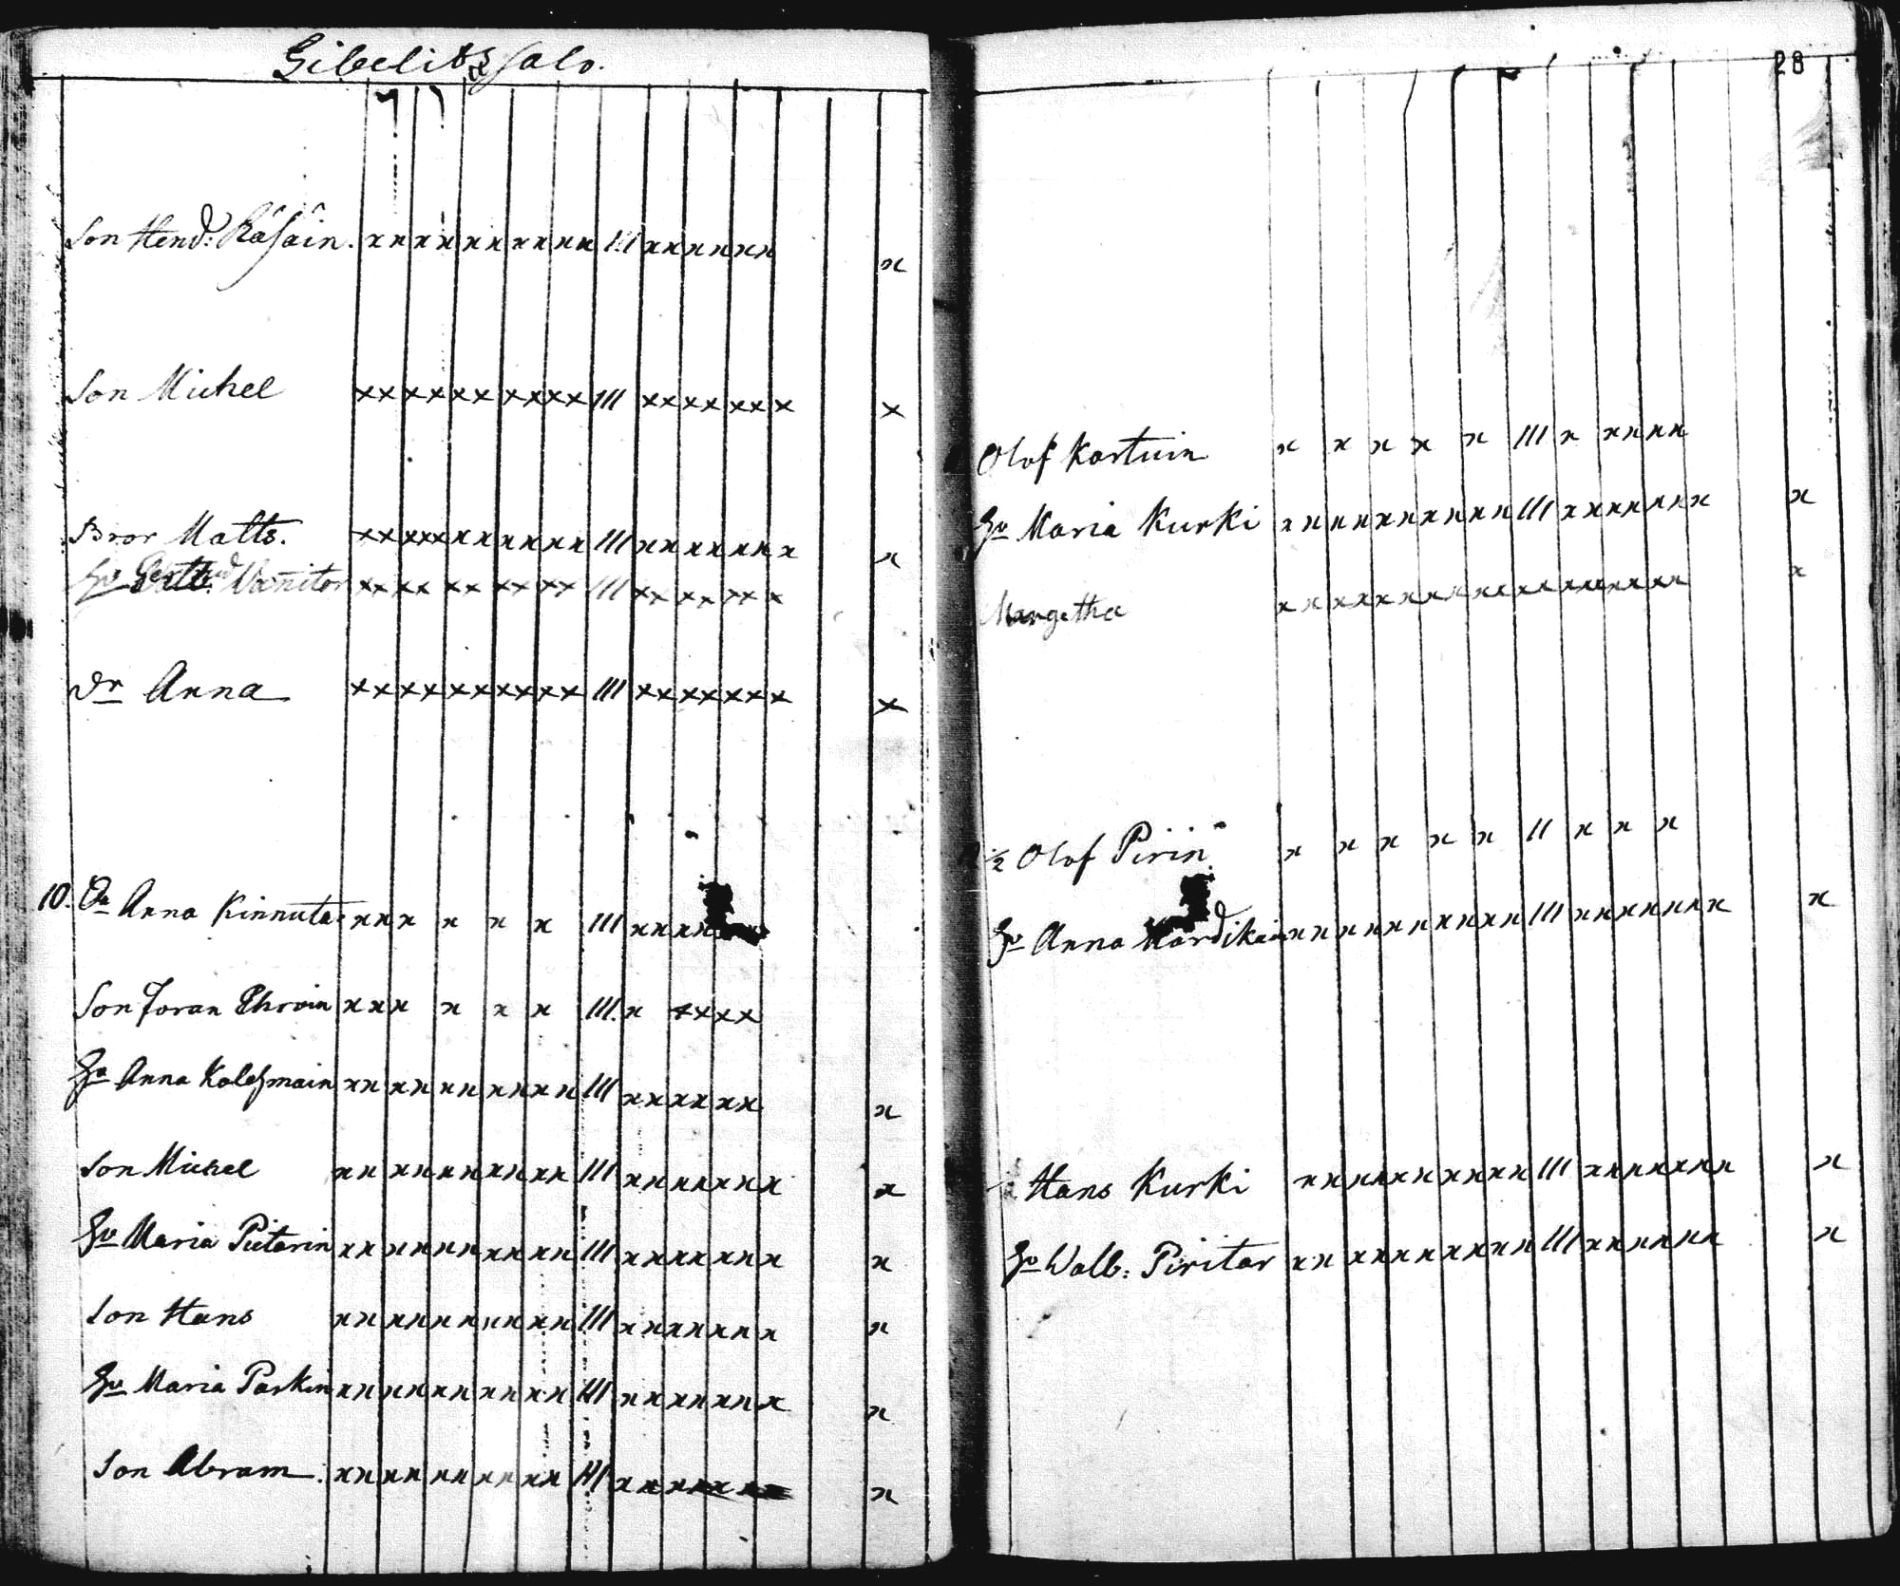 Gibelits salo.
28
Son Hend: Räsäin. xx xx xx xx xx III xx xx xx x
Son Michel xx xx xx xx xx III xx xx xx x x
Bror Matts. xx xx xx xx xx III xx xx xx x x
Hu xx xx xx xx xx III xx xx xx x
dr Anna xx xx xx xx xx III xx xx xx x x
10. Ea Anna Kinnuta: xx x x x x III xx xx
Son Joran Ehroin xx x x x x III x xx xx
Hu Anna Kolehmain xx xx xx xx xx III xx xx xx x
Son Michel xx xx xx xx xx III xx xx xx x x
Hu Maria Pietarin xx xx xx xx xx III xx xx xx x x
Son Hans xx xx xx xx xx III xx xx xx x x
Hu Maria Parkin xx xx xx xx xx III xx xx xx x x
Son Abram xx xx xx xx xx III x
Olof Kortuin x x x x x III x xx xx
Hu Maria Kurki xx xx xx xx xx III xx xx xx x x
Margetha x
1/2 Olof Pirin x x x x x II x x x
Hu Anna xx xx xx xx xx III xx xx xx x x
Hans Kurki xx xx xx xx xx III xx xx xx x x
Hu Walb: Piritar xx xx xx xx xx III xx xx xx x